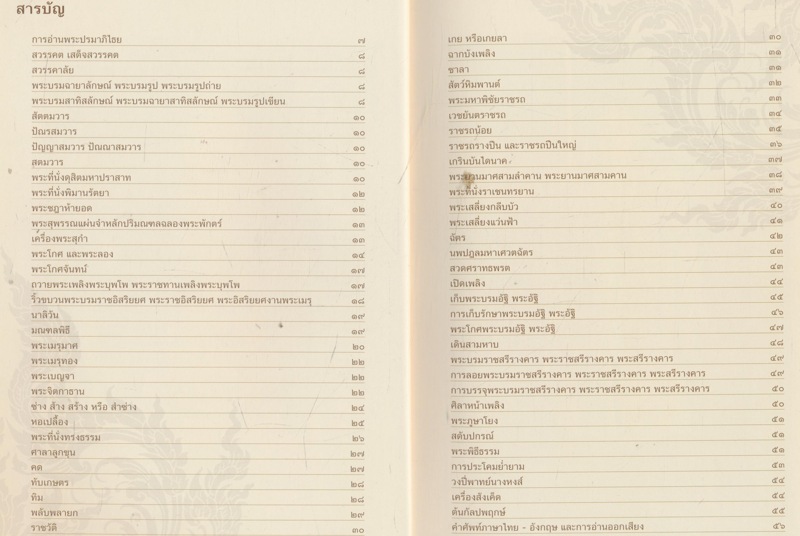 สารบัญ
การอ่านพระปรมาภิไธย ๗
สวรรคต เสด็จสวรรคต ๘
สวรรคาลัย ๘
พระบรมฉายาลักษณ์ พระบรมรูป พระบรมรูปถ่าย ๘
พระบรมสาทิสลักษณ์ พระบรมฉายาสาทิสลักษณ์ พระบรมรูปเขียน ๘
สัตตมวาร ๑๐
ปัณรสมวาร ๑๐
ปัญญาสมวาร ปัณณาสมวาร ๑๐
สตมวาร ๑๐
พระที่นั่งดุสิตมหาปราสาท ๑๐
พระที่นั่งพิมานรัตยา ๑๒
พระชฎาห้ายอด ๑๒
พระสุพรรณแผ่นจำหลักปริมณฑลฉลองพระพักตร์ ๑๓
เครื่องพระสุกำ ๑๓
พระโกศ และพระลอง ๑๔
พระโกศจันทน์ ๑๗
ถวายพระเพลิงพระบุพโพ พระราชทานเพลิงพระบุพโพ ๑๗
ริ้วขบวนพระบรมราชอิสริยยศ พระราชอิสริยยศ พระอิสริยยศงานพระเมรุ ๑๘
นาลิวัน ๑๙
มณฑลพิธี ๑๙
พระเมรุมาศ ๒๐
พระเมรุทอง ๒๒
พระเบญจา ๒๒
พระจิตกาธาน ๒๒
ซ่าง ส้าง สร้าง หรือ สำซ่าง ๒๔
หอเปลื้อง ๒๕
พระที่นั่งทรงธรรม ๒๖
ศาลาลูกขุน ๒๗
คด ๒๗
ทับเกษตร ๒๘
ทิม ๒๘
พลับพลายก ๒๙
ราชวัติ ๓๐
เกย หรือเกยลา ๓๐
ฉากบังเพลิง ๓๑
ชาลา ๓๑
สัตว์หิมพานต์ ๓๒
พระมหาพิชัยราชรถ ๓๓
เวชยันตราชรถ ๓๔
ราชรถน้อย ๓๕
ราชรถรางปืน และราชรถปืนใหญ่ ๓๖
เกรินบันไดนาค ๓๗
พระยานมาศสามลำคาน พระยานมาศสามคาน ๓๘
พระที่นั่งราเชนทรยาน ๓๙
พระเสลี่ยงกลีบบัว ๔๐
พระเสลี่ยงแว่นฟ้า ๔๑
ฉัตร ๔๒
นพปฎลมหาเศวตฉัตร ๔๓
สวดศราทธพรต ๔๓
เปิดเพลิง ๔๔
เก็บพระบรมอัฐิ พระอัฐิ ๔๕
การเก็บรักษาพระบรมอัฐิ พระอัฐิ ๔๖
พระโกศพระบรมอัฐิ พระอัฐิ ๔๗
เดินสามหาบ ๔๘
พระบรมราชสรีรางคาร พระราชสรีรางคาร พระสรีรางคาร ๔๙
การลอยพระบรมราชสรีรางคาร พระราชสรีรางคาร พระสรีรางคาร ๔๙
การบรรจุพระบรมราชสรีรางคาร พระราชสรีรางคาร พระสรีรางคาร ๕๐
ศิลาหน้าเพลิง ๕๐
พระภูษาโยง ๕๑
สดับปกรณ์ ๕๑
พระพิธีธรรม ๕๑
การประโคมย่ำยาม ๕๓
วงปี่พาทย์นางหงส์ ๕๔
เครื่องสังเค็ด ๕๔
ต้นกัลปพฤกษ์ ๕๕
คำศัพท์ภาษาไทย - อังกฤษ และการอ่านออกเสียง ๕๖